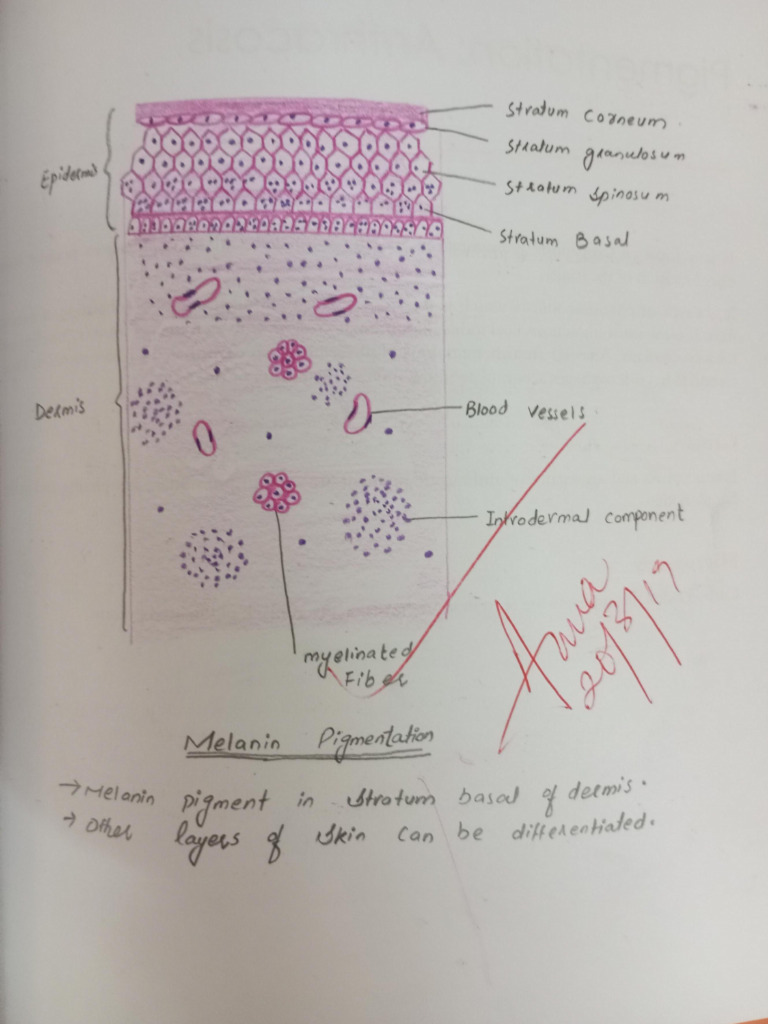 Stratum Corneum.
Stratum granulosum
Epidermis
Stratum Spinosum
Stratum Basal
Dermis
Blood Vessels
Introdermal component
20/3/19
myelinated
Fiber
Melanin Pigmentation
→ Melanin pigment in Stratum basal of dermis.
→ Other layers of Skin can be differentiated.